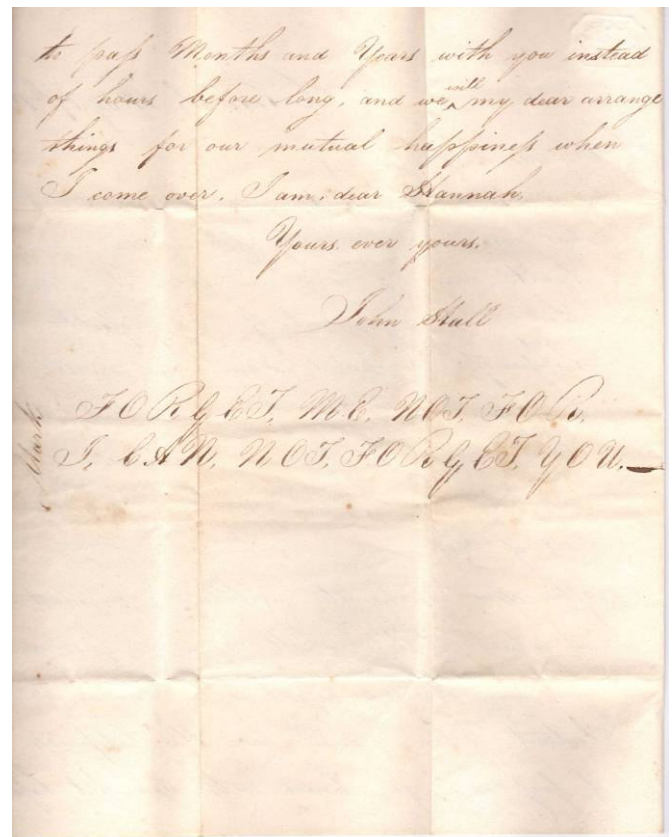 to pass Months and Years with you instead
of hours before long, and we will my dear arrange
things for our mutual happiness when
I come over. I am, dear Hannah,
Yours ever yours.
John Hull
Mark
FORGET. ME. NOT. FOR.
I. CAN. NOT. FORGET. YOU.—